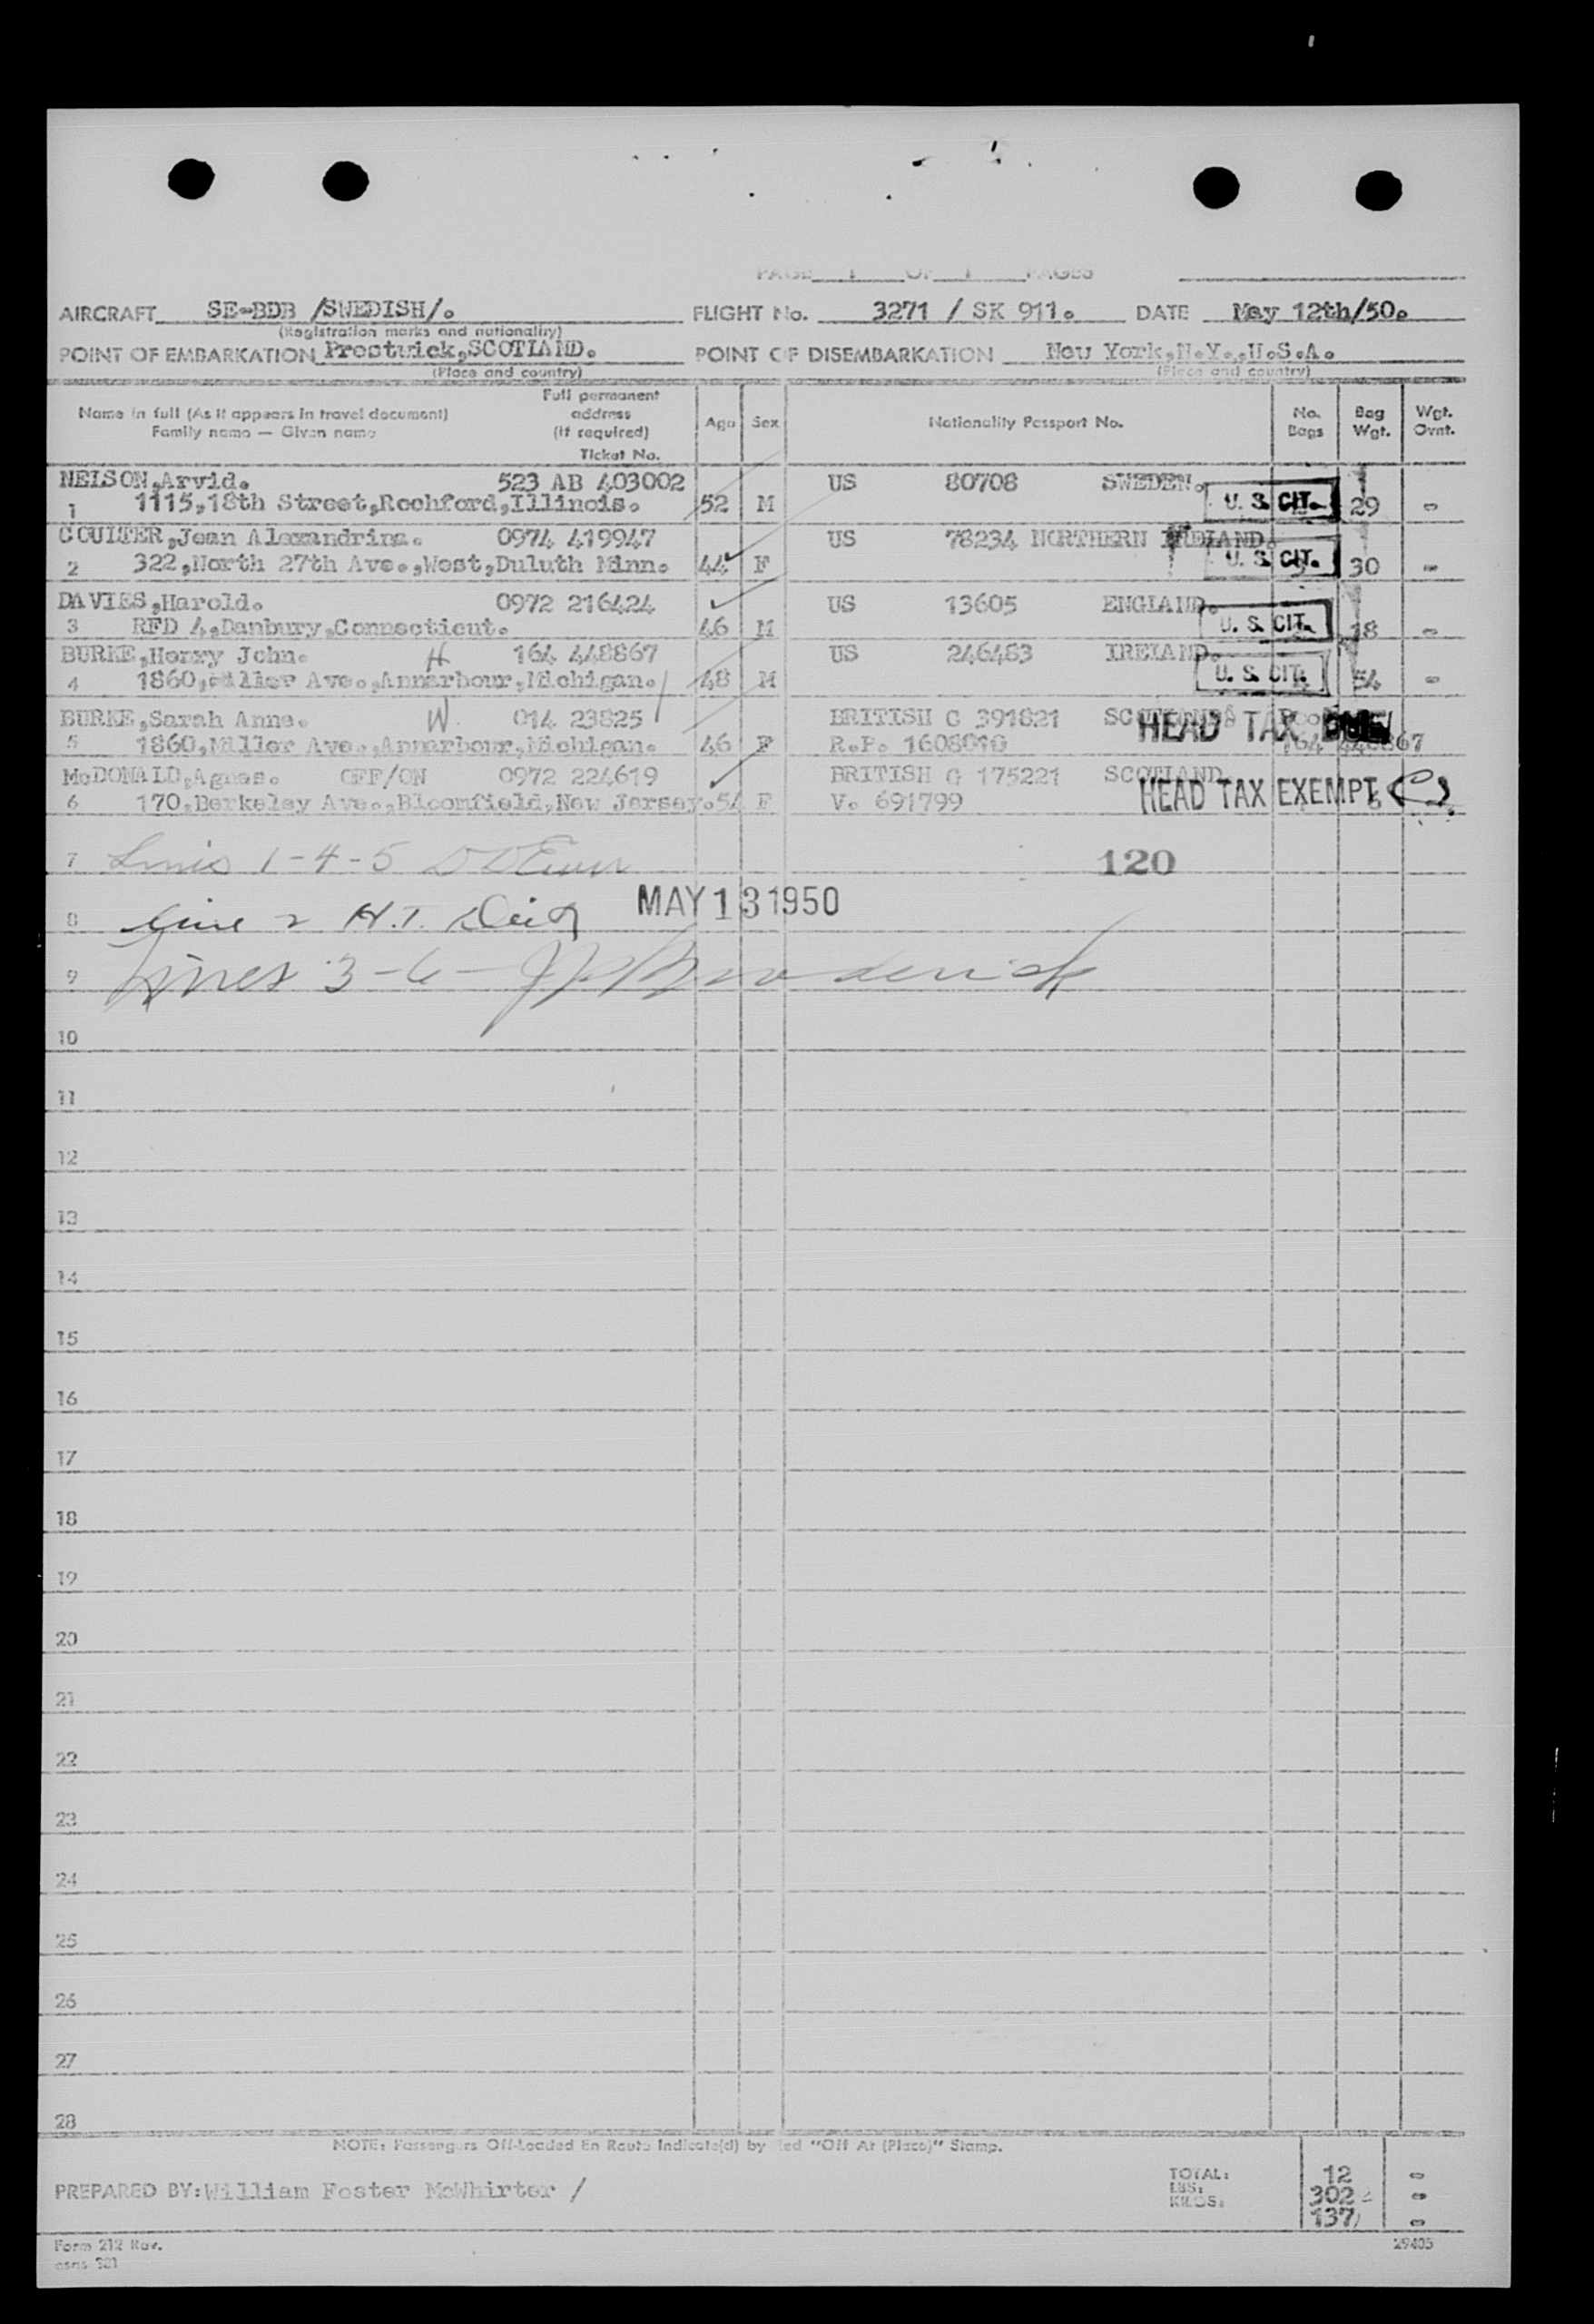 PAGE 1 OF 1 PAGES
AIRCRAFT SE-BDB /SWEDISH/. FLIGHT No. 3271 / SK 911. DATE May 12th/50.
(Registration marks and nationality)
POINT OF EMBARKATION Prestwick,SCOTLAND. POINT OF DISEMBARKATION New York,N.Y.,U.S.A.
(Place and country) (Place and country)
Name in full (As it appears in travel document) Family name — Given name
Full permanent address (If required) Ticket No.
Age Sex Nationality Passport No. No. Bags Bag Wgt. Wgt. Ovnt.
NELSON,Arvid. 523 AB 403002 US 80708 SWEDEN.
1 1115,18th Street,Rochford,Illinois. 52 M U. S. CIT. 29 -
COULTER,Jean Alexandrina. 0974 419947 US 78234 NORTHERN
2 322,North 27th Ave.,West,Duluth Minn. 44 F U. S. CIT. 30 -
DAVIES,Harold. 0972 216424 US 13605 ENGLAND.
3 RFD 4,Danbury,Connecticut. 46 M U. S. CIT. 18 -
BURKE,Henry John. H 164 448867 US 246483 IRELAND.
4 1860,Miller Ave.,Annarbour,Michigan. 48 M U. S. CIT. 54 -
BURKE,Sarah Anne. W. 014 23825 BRITISH C 391821 HEAD TAX
5 1860,Miller Ave.,Annarbour,Michigan. 46 F R.P. 164 448867
McDONALD,Agnes. OFF/ON 0972 224619 BRITISH C 175221 SCOTLAND.
6 170,Berkeley Ave.,Bloomfield,New Jersey. 54 F V. 691799 HEAD TAX EXEMPT
7 1-4-5 120
8 Line 2 H.T. MAY 13 1950
9 Lines 3-6- Broderick
10
11
12
13
14
15
16
17
18
19
20
21
22
23
24
25
26
27
28
NOTE: Passengers Off-Loaded En Route Indicate(d) by Red "Off At (Place)" Stamp.
PREPARED BY: William Foster McWhirter /
TOTAL: 12 -
LBS: 302 -
KILOS: 137 -
Form 212 Rev. 29405